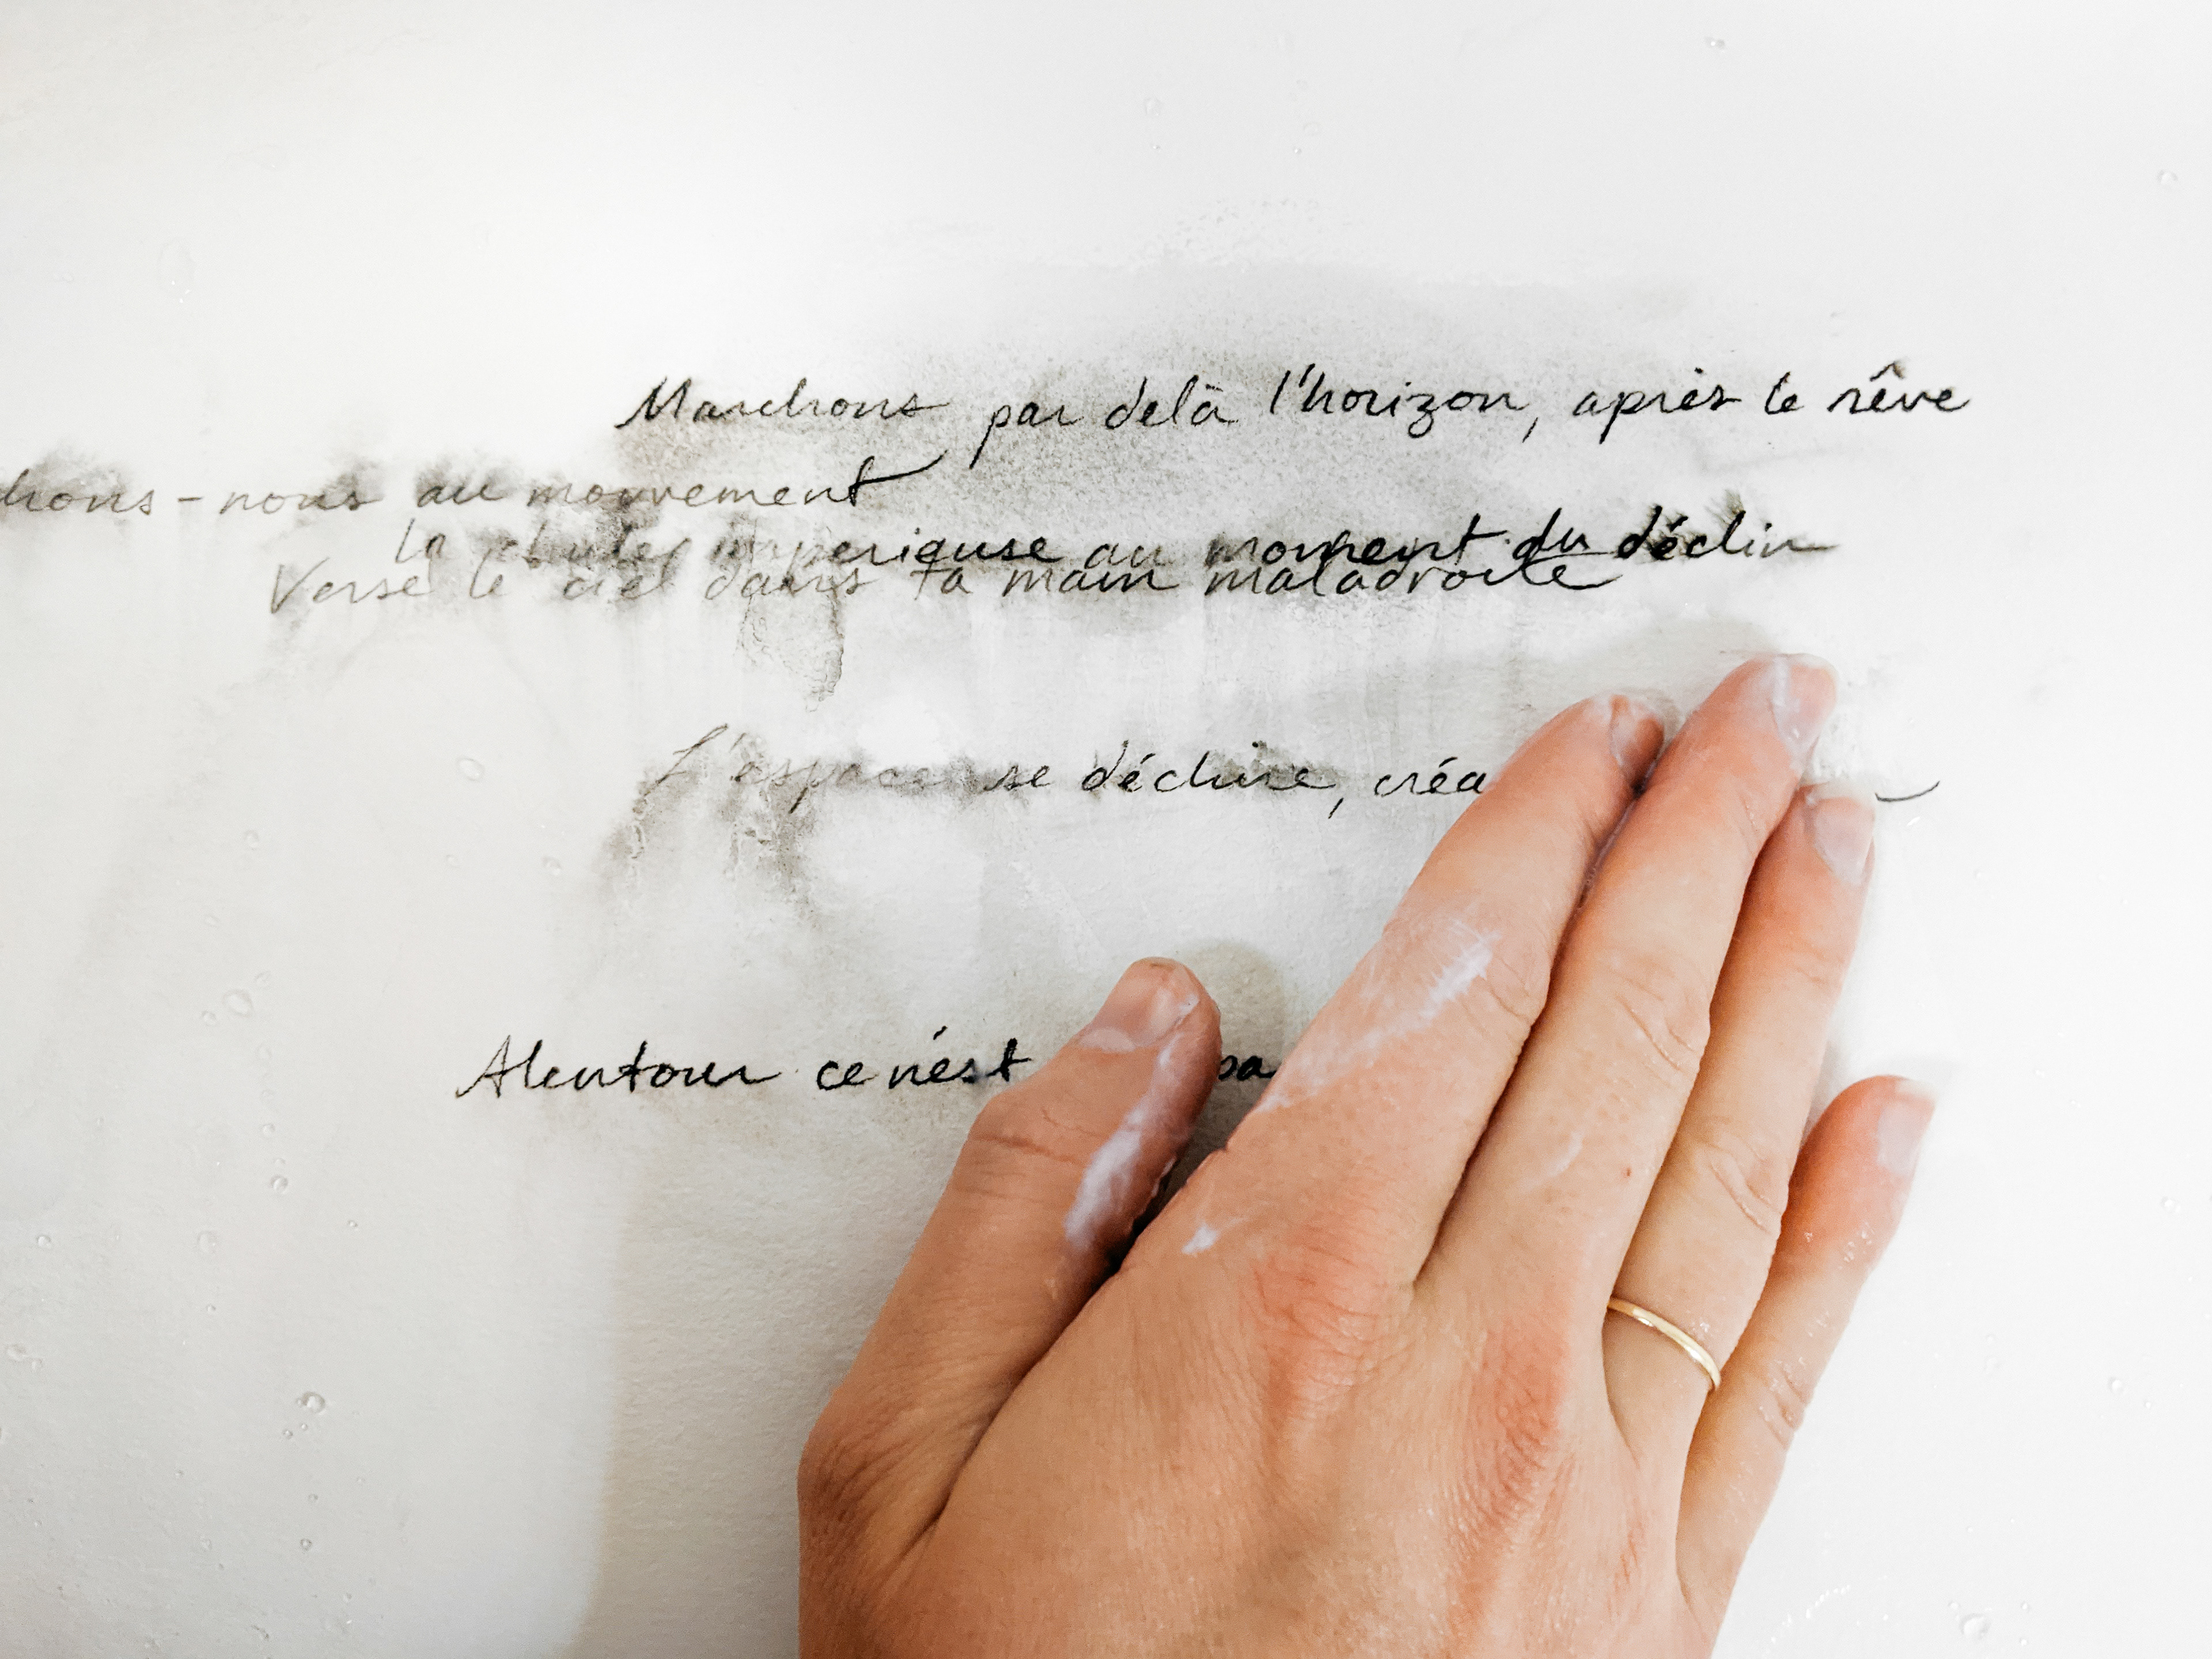 Marchons par delà l'horizon, après le rêve
-nous au mouvement
la chute impérieuse au moment du déclin
Verse le ciel dans ta main maladroite
L'espace se déchire, créa
Alentour ce n'est pa